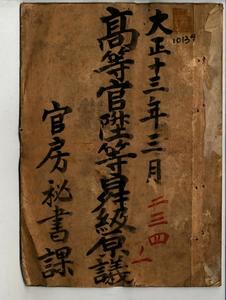 大正十三年三月
10134
高等官陞等昇級合議
二三四ノ一
官房秘書課